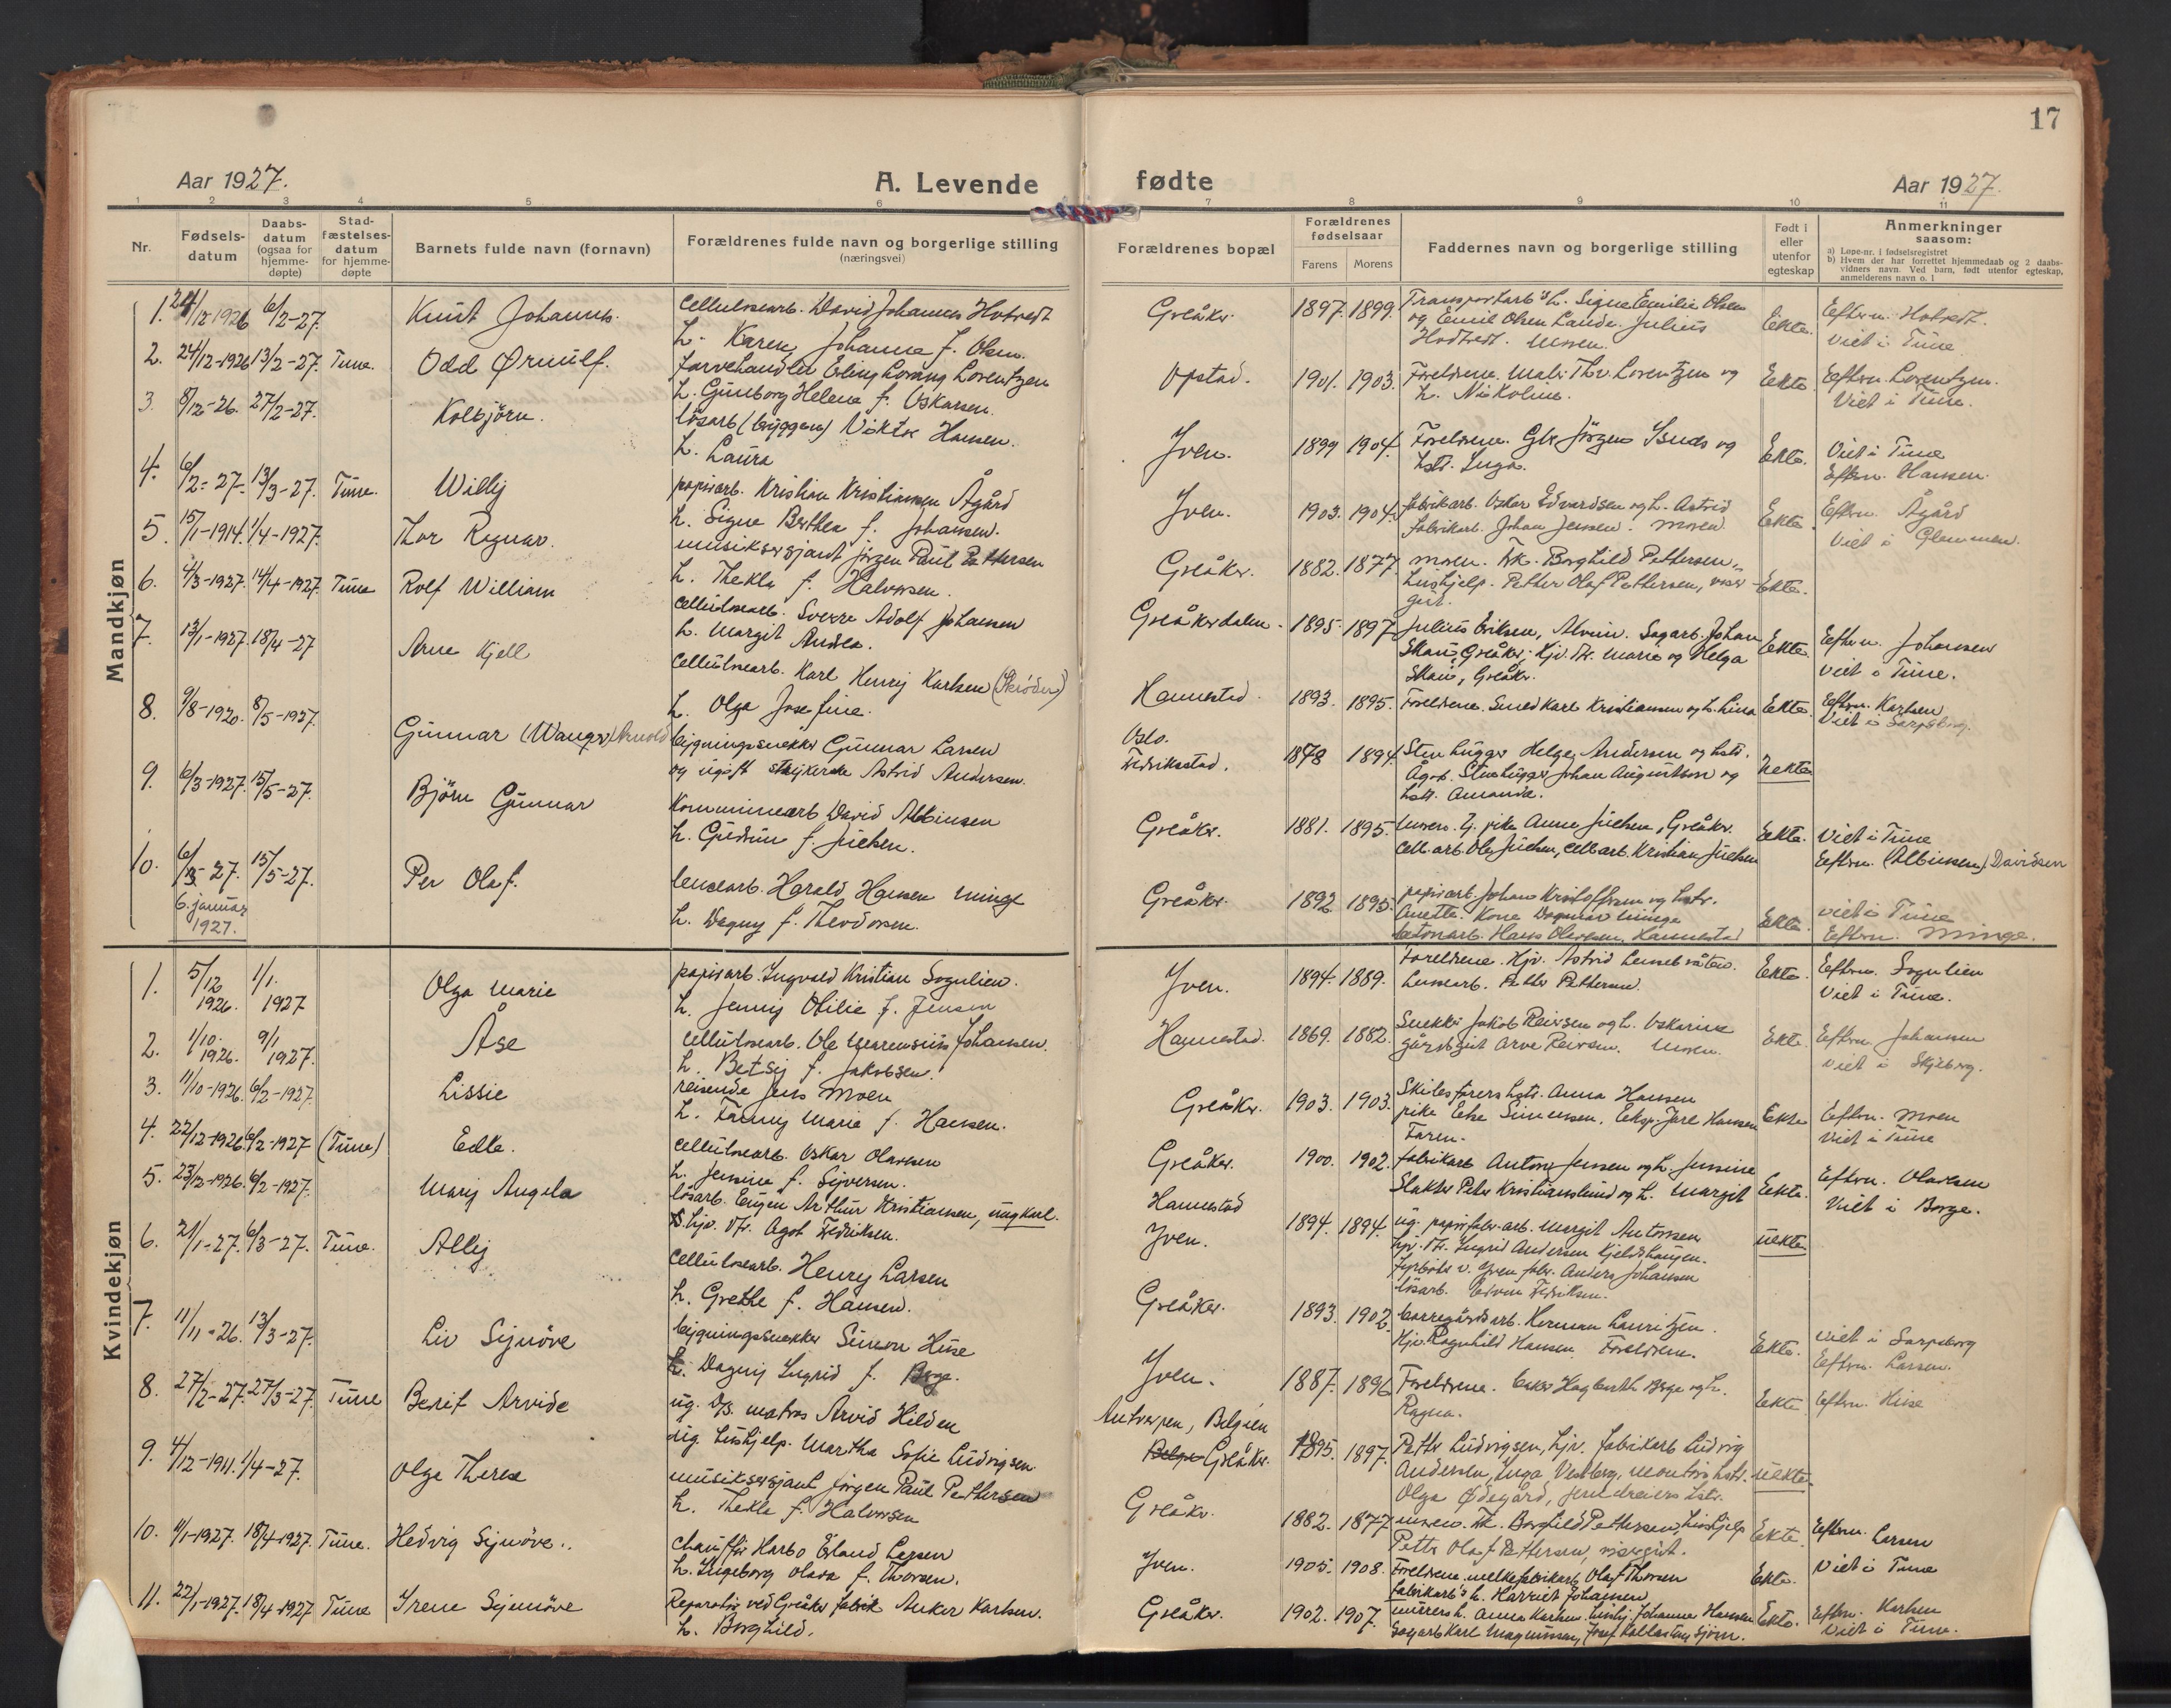 17
Aar 1927.
A. Levende
fødte
Aar 1927.
1 2 3 4 5 6 7 8 9 10 11
Nr.
Fødsels-
datum
Daabs-
datum
(ogsaa for
hjemme-
døpte)
Stad-
fæstelses-
datum
for hjemme-
døpte
Barnets fulde navn (fornavn)
Forældrenes fulde navn og borgerlige stilling
(næringsvei)
Forældrenes bopæl
Forældrenes
fødselsaar
Farens Morens
Faddernes navn og borgerlige stilling
Født i
eller
utenfor
egteskap
Anmerkninger
saasom:
a) Løpe-nr. i fødselsregistret
b) Hvem der har forrettet hjemmedaab og 2 daabs-
vidners navn. Ved barn, født utenfor egteskap,
anmelderens navn o. l
Mandkjøn
1. 24/12 1926 6/2-27. Knut Johannes.
Cellulosearb. David Johannes Hotvedt
h. Karen Johanne f. Olsen.
Greåker. 1897. 1899.
Transportarb's h. Signe Emilie Olsen
og Emil Olsen Lande. Julius
Hodtvedt. Moren.
Ekte.
Eftern. Hotvedt.
Viet i Tune.
2. 24/12-1926 13/2-27. Tune. Odd Ørnulf.
farvehandler Erling Lorang Lorentzen
h. Gunborg Helene f. Oskarsen.
Opstad. 1901. 1903.
Foreldrene. Maler Thv. Lorentzen og
h. Nikoline.
Ekte.
Eftern. Lorentzen.
Viet i Tune.
3. 8/12-26. 27/2-27. Kolbjørn.
løsarb (bryggen) Viktor Hansen.
h. Laura
Yven. 1899 1904.
Foreldrene. Gbr Jørgen Buds og
hstr. Inga.
Ekte.
Viet i Tune
Eftern. Hansen.
4. 6/2-27. 13/3-27. Tune. Willy
papirarb. Kristian Kristiansen Ågård
h. Signe Berthea f. Johansen.
Yven. 1903. 1904.
fabrikarb. Oskar Edvardsen og h. Astrid
fabrikarb. Johan Jensen. Moren
Ekte.
Eftern. Ågård
Viet i Glemmen.
5. 15/1-1914. 1/4-1927. Thor Ragnar.
musiksersjant Jørgen Paul Pettersen
h. Thekla f. Halvorsen.
Greåker. 1882. 1877
Moren. Frk. Borghild Pettersen,
hushjelp. Petter Olaf Pettersen, viser-
gut.
Ekte.
6. 4/3-1927. 14/4-1927. Tune Rolf William
Cellulosearb. Sverre Adolf Johansen
h. Margit Andrea.
Greåkerdalen. 1895. 1897
Julius Eriksen, Alvim. Sagarb. Johan
Skau, Greåker. Hjv. Fr. Marie og Helga
Skau, Greåker.
Ekte.
Eftern. Johansen
Viet i Tune.
7. 13/1-1927. 18/4-27 Arne Kjell
Cellulosearb. Karl Henry Karlsen (Skrøder)
h. Olga Josefine.
Hannestad. 1893. 1895.
Foreldrene. Smed Karl Kristiansen og h. Lina
Ekte.
Eftern. Karlsen
Viet i Sarpsborg.
8. 9/8-1920. 8/5-1927. Gunnar (Wanger) Arnold
bygningssnekker Gunnar Larsen
og ugift strykerske Astrid Andersen.
Oslo.
Fredriksstad. 1878 1894
Stenhugger Helge Andersen og hstr.
Ågot. Stenhugger Johan Augustson og
hstr. Amanda.
Uekte
9. 6/3-1927. 15/5-27. Bjørn Gunnar
Kommunearb David Albinsen
h. Gudrun f. Juelsen.
Greåker. 1881. 1895.
Moren. Ug. pike Anne Juelsen, Greåker.
Cell. arb. Ole Juelsen, Cell.arb. Kristian Juelsen
Ekte.
Viet i Tune
Eftern. (Albinsen) Davidsen
10. 6/3-27. 15/5-27. Per Olaf.
6. januar
1927.
lensearb. Harald Hansen Minge
h. Dagny f. Theodorsen.
Greåker. 1892 1895
papirarb. Johan Kristoffersen og hstr.
Anette. Kone Dagmar Minge
betonarb. Hans Olavesen, Hannestad
Ekte.
Viet i Tune
Eftern. Minge.
Kvindekjøn
1. 5/12 1926. 1/1. 1927 Olga Marie
papirarb. Ingvald Kristian Sognlien.
h. Jenny Otilie f. Jensen
Yven. 1894. 1889.
Foreldrene. Hjv. Astrid
Lensearb. Petter Pettersen
Ekte.
Eftern. Sognlien
Viet i Tune.
2. 1/10. 1926. 9/1 1927. Åse
Cellulosearb. Ole Marensius Johansen.
h. Betsy f. Jakobsen.
Hannestad. 1869. 1882.
Snekker Jakob Reiersen og h. Oskarine
gårdsgut Arve Reiersen. Moren.
Ekte.
Eftern. Johansen
Viet i Skjeberg.
3. 11/10-1926. 6/2-1927. Lissie
reisende Jens Moen
h. Fanny Marie f. Hansen.
Greåker. 1903. 1903.
Skibsførers hstr. Anna Hansen
pike Else Simensen. Eksp. Jarl Hansen
Faren.
Ekte
Eftern. Moen
Viet i Tune
4. 22/12-1926 6/2-1927 (Tune) Edle.
Cellulosearb. Oskar Olavesen
h. Jensine f. Syversen.
Greåker. 1900. 1902.
fabrikarb Anton Jensen og h. Jensine
Slakter Peter Kristianslund og h. Margit
Ekte.
Eftern. Olavesen
Viet i Borge.
5. 23/12-1926. 6/2-1927. Mary Angela
løsarb. Eugen Arthur Kristiansen, ungkarl.
hjv. Fr. Agot Fredriksen.
Hannestad
Yven. 1894. 1894.
ug. papirfabr.arb. Margit Antonsen
hjv. Fr. Ingrid Andersen Kjeldshaugen.
fyrbøter v. Yven fabr. Anders Johansen
løsarb. Edvin Fredriksen.
uekte
6. 21/1-27. 6/3-27. Tune. Ally
Cellulosearb. Henry Larsen
h. Grethe f. Hansen.
Greåker. 1893. 1902.
Herman Lauritzen.
Hjv. Ragnhild Hansen. Foreldrene.
Ekte.
Viet i Sarpsborg
Eftern. Larsen.
7. 11/11-26. 13/3-27. Liv Synøve
bygningssnekker Simon Huse
h. Dagny Ingrid f. Berge.
Yven. 1887. 1896
Foreldrene. Hagbarth Berge og h.
Ragna.
Ekte
Eftern. Huse
8. 27/2-27. 27/3-27. Tune Berit Arvide
ug. D/S. matros Arvid Hilden
ug. hushjelp. Martha Sofie Ludvigsen
Antverpen, Belgien
Greåker. 1895. 1897.
Petter Ludvigsen, hjv. fabrikarb Ludvig
Andersen, Inga Vestberg, montørs hstr.
Olga Ødegård, hstr.
uekte
9. 4/12-1911. 1/4-27. Olga Therese
musiksersjant Jørgen Paul Pettersen
h. Thekla f. Halvorsen
Greåker. 1882. 1877
Moren. Frk. Borghild Pettersen, hushjelp
Petter Olaf Pettersen, visergut.
Ekte.
10. 4/1-1927. 18/4-1927. Tune. Hedvig Synøve.
Chauffør Harbo Erland Larsen
h. Ingeborg Olava f. Thorsen.
Yven. 1905. 1908.
Foreldrene. Olaf Thorsen
fabrikarb's h. Harriet Johansen
Ekte.
Eftern. Larsen
Viet i Tune
11. 22/1-1927. 18/4-1927 Tune Irene Synnøve
Reparatør ved Greåker fabrik Anker Karlsen.
h. Borghild.
Greåker. 1902. 1907.
murers h. Anna Karlsen. hushj. Johanne Hansen
Sagarb Karl Magnussen, Josef
Ekte.
Eftern. Karlsen
Viet i Tune.